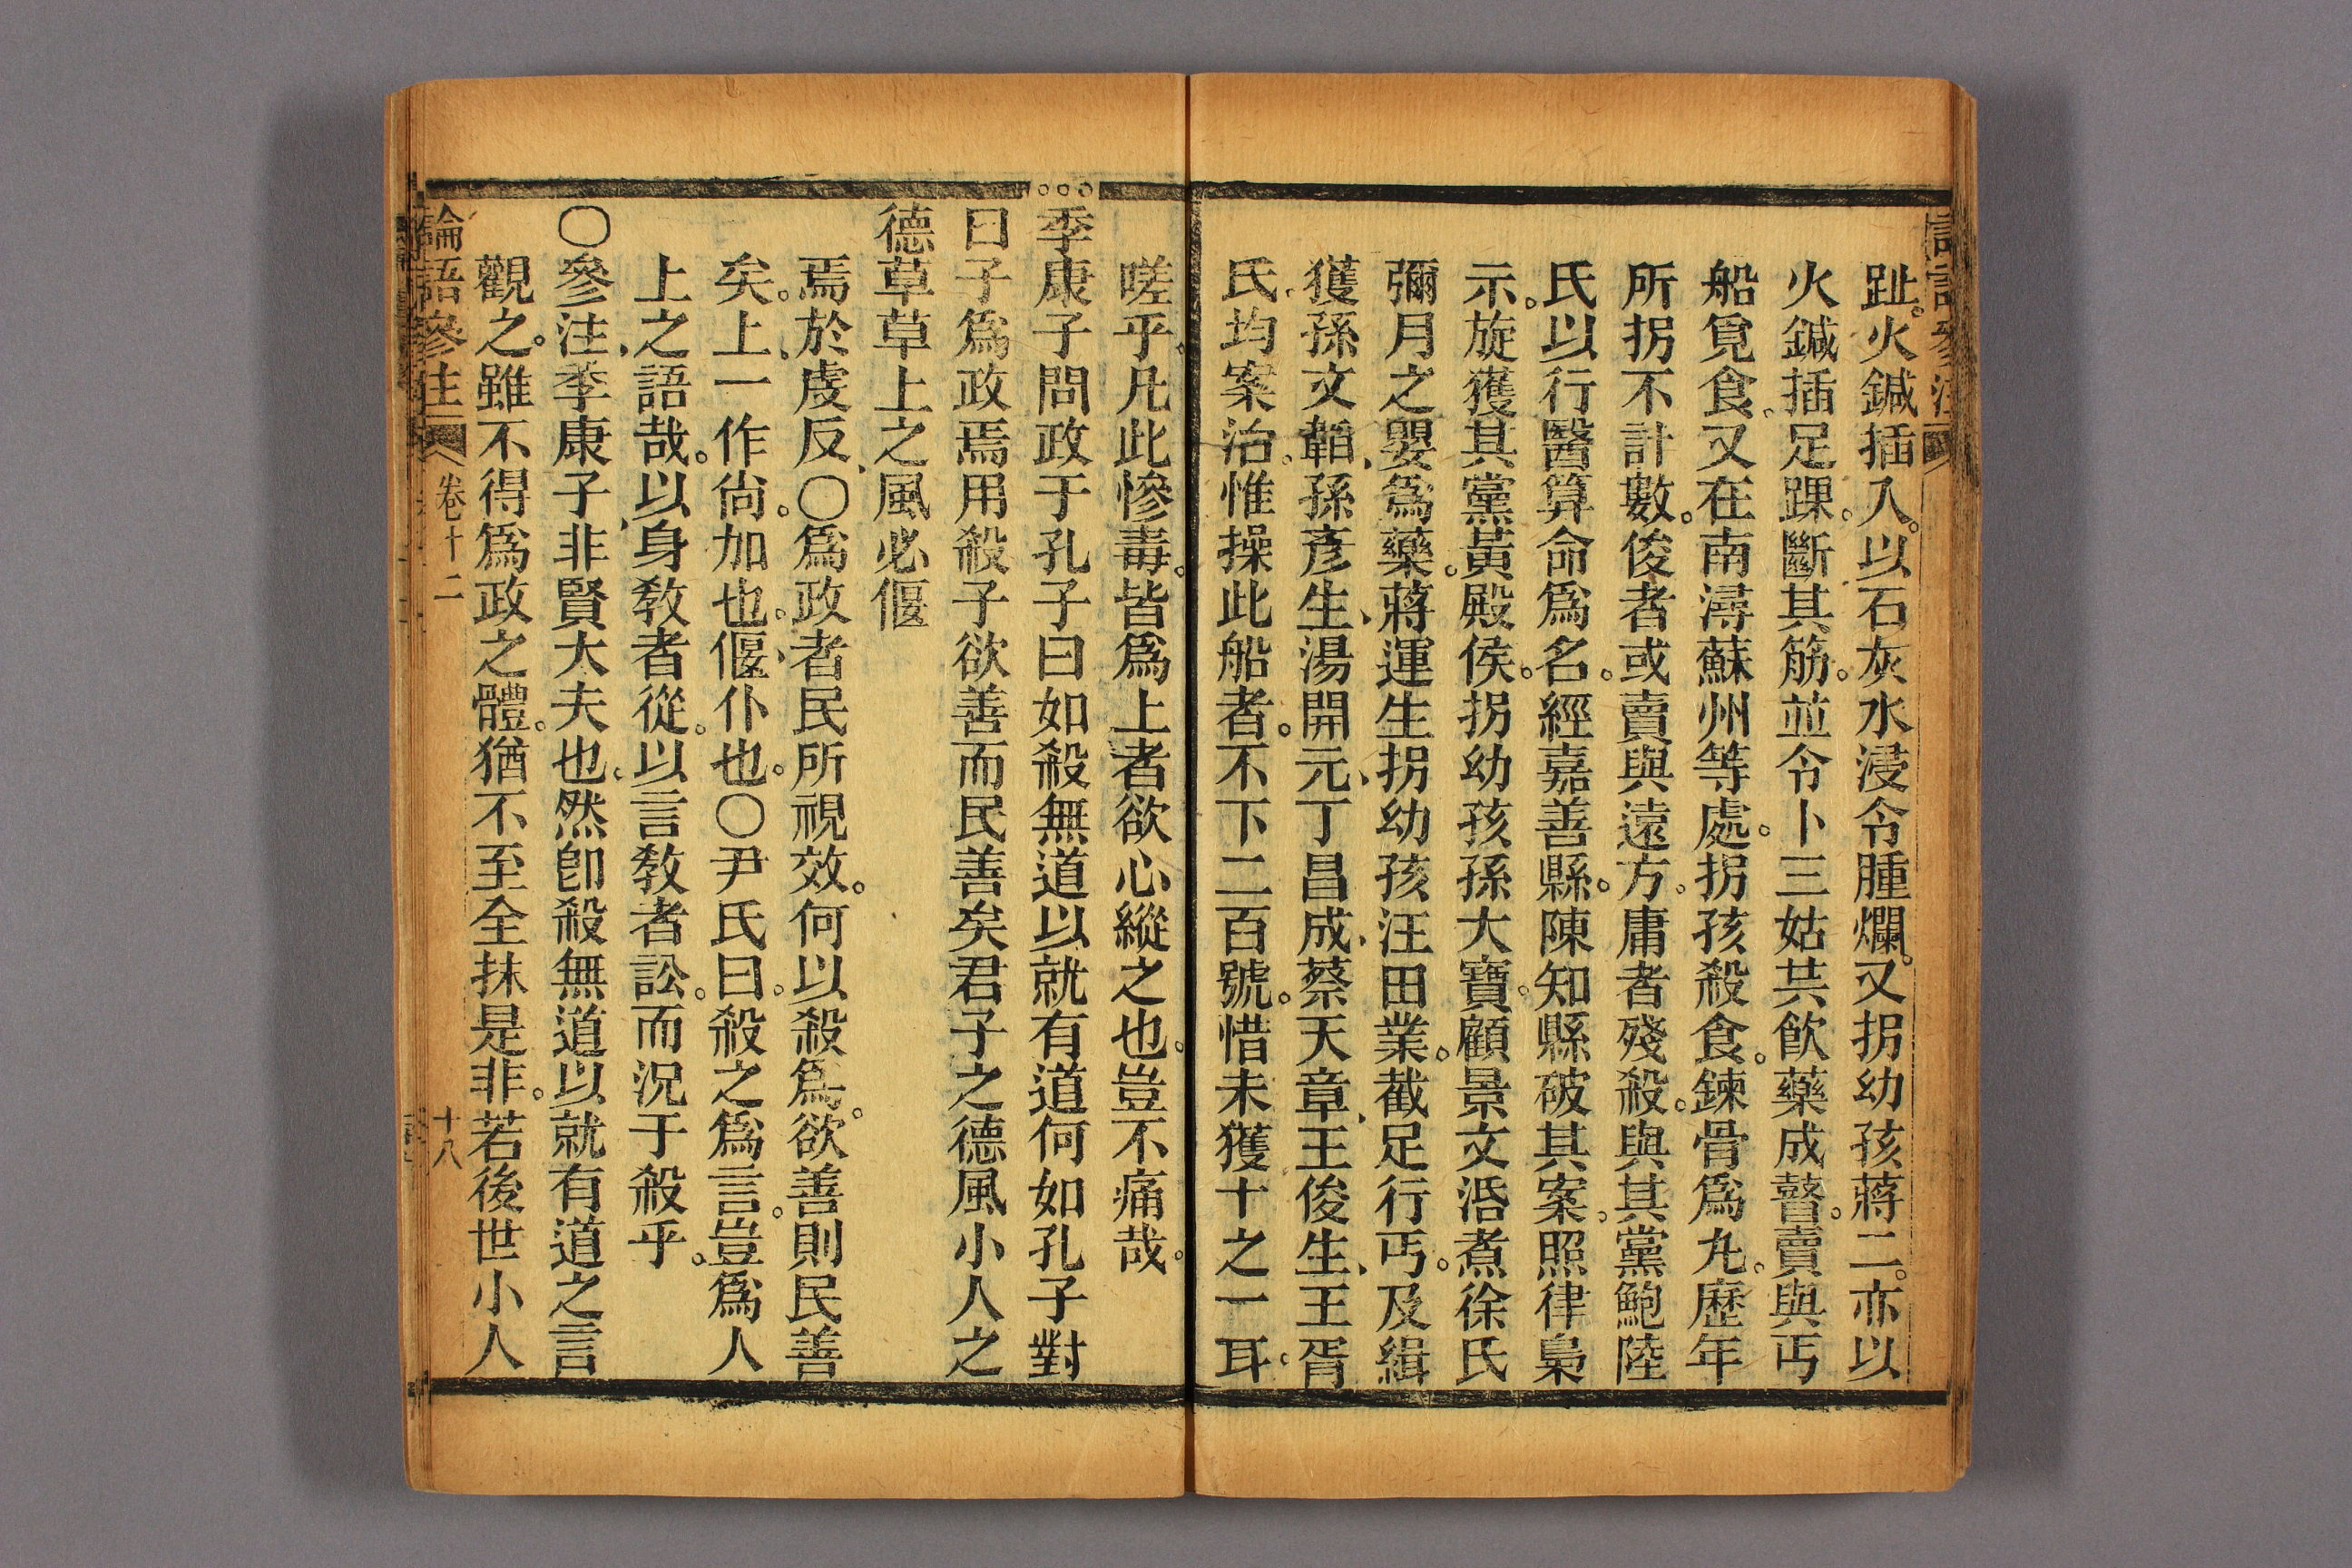 趾。火鍼插入。以石灰水浸令腫爛。又拐幼孩蔣二。亦以
火鍼插足踝。斷其筋。並令卜三姑共飮藥成瞽。賣與丐
船覓食。又在南潯蘇州等處。拐孩殺食。鍊骨爲丸。歷年
所拐不計數。俊者或賣與遠方。庸者殘殺。與其黨鮑陸
氏以行醫算命爲名。經嘉善縣。陳知縣破其案。照律梟
示。旋獲其黨黃殿侯。拐幼孩孫大寶。顧景文湉煮徐氏
彌月之嬰爲藥。蔣運生拐幼孩汪田業。截足行丐。及緝
獲孫文韜、孫彥生、湯開元、丁昌成、蔡天章、王俊生、王胥
氏、均案治。惟操此船者。不下二百號。惜未獲十之一耳。
嗟乎。凡此慘毒。皆爲上者欲心縱之也。豈不痛哉。
季康子問政于孔子曰如殺無道以就有道何如孔子對
曰子爲政焉用殺子欲善而民善矣君子之德風小人之
德草草上之風必偃
焉於虔反、〇爲政者民所視效。何以殺爲。欲善則民善
矣。上、一作尙。加也。偃、仆也。〇尹氏曰。殺之爲言。豈爲人
上之語哉。以身敎者從。以言敎者訟。而況于殺乎。
〇參注、季康子、非賢大夫也。然卽殺無道以就有道之言
觀之。雖不得爲政之體。猶不至全抹是非。若後世小人
論語參注 卷十二 十八